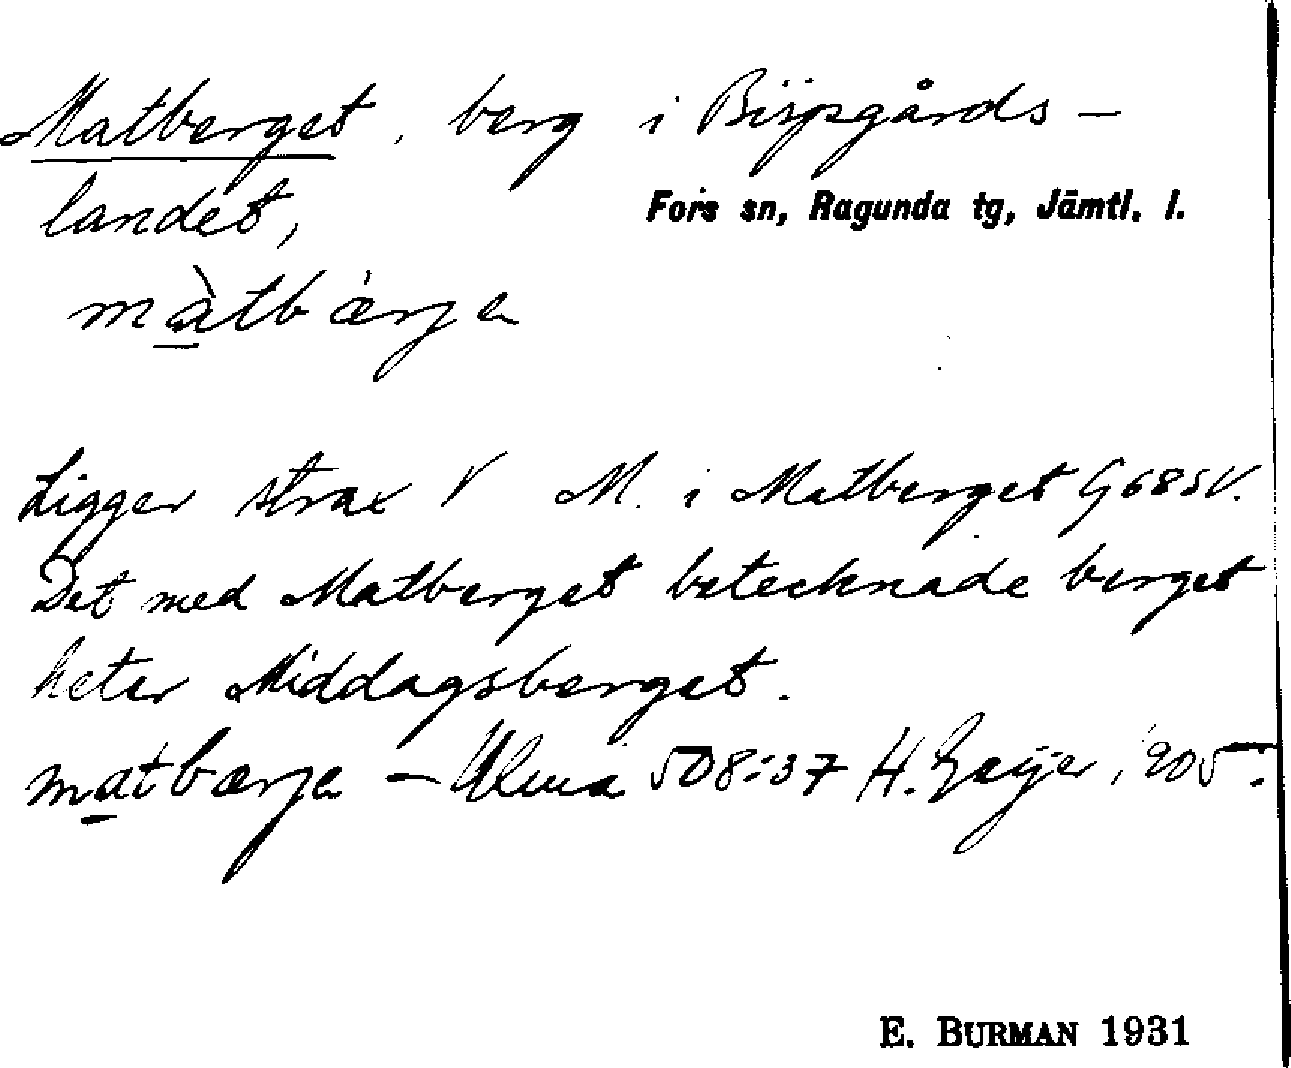 Matberget, berg i Bispgårds-
landet,
Fors sn, Ragunda tg, Jämtl. l.
mà̱tbæ̀rje
Ligger strax V M. i Matberget G68SV.
Det med Matberget betecknade berget
heter Middagsberget.
ma̱tbærje – Ulma 508:37 H. Geijer, '205:
E. BURMAN 1931